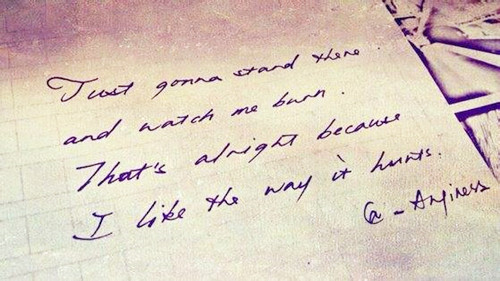 Just gonna stand there
and watch me burn.
That's alright because
I like the way it hurts.
@_Anjiness